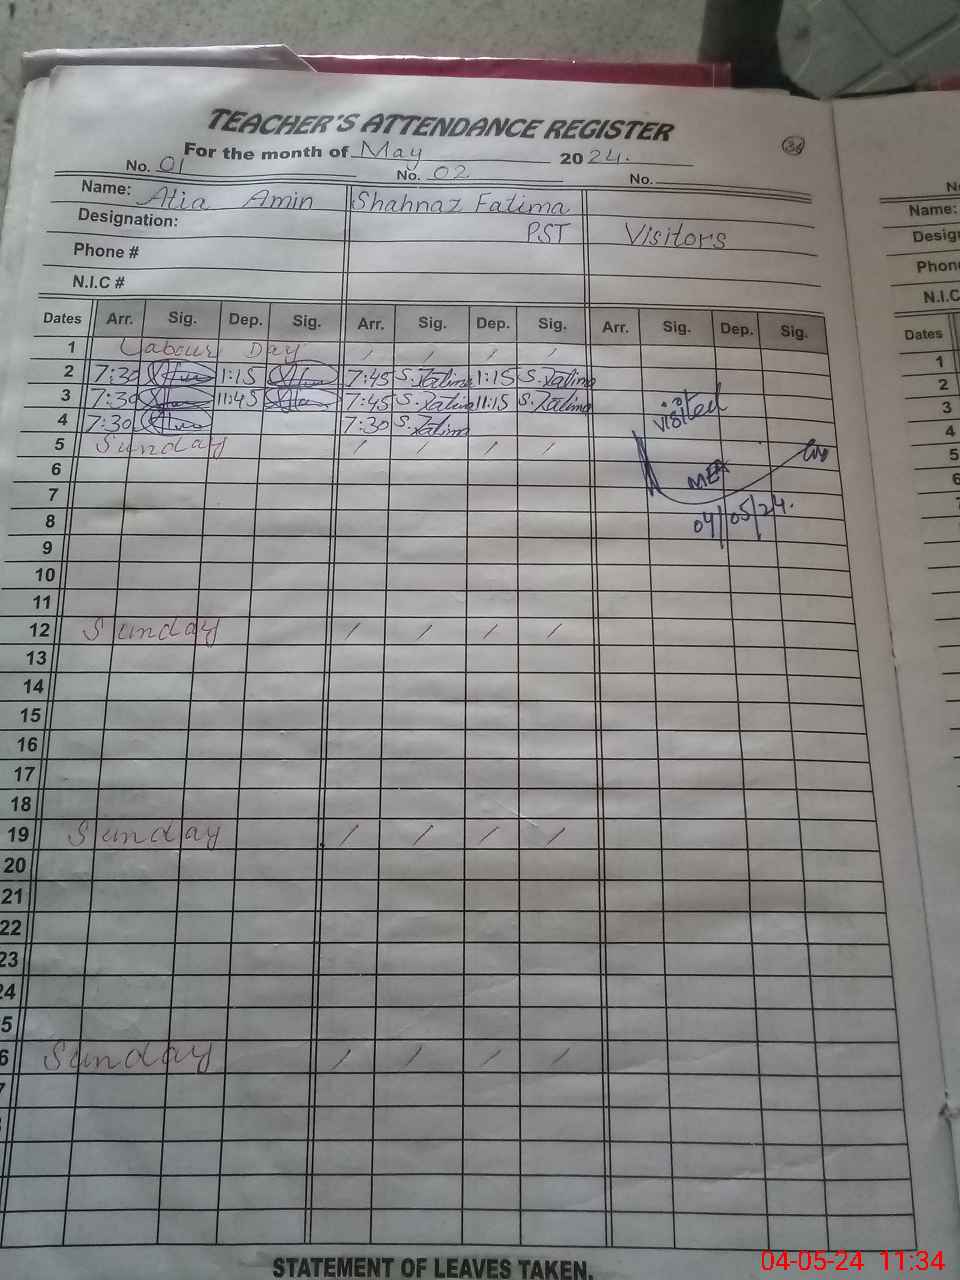 TEACHER'S ATTENDANCE REGISTER
36
For the month of May 2024.
No. 01 No. 02 No.
Name: Atia Amin Shahnaz Fatima
Designation: PST Visitors
Phone #
N.I.C #
Dates Arr. Sig. Dep. Sig. Arr. Sig. Dep. Sig. Arr. Sig. Dep. Sig.
1 Labour Day / / / /
2 7:30 1:15 7:45 S.Fatima 1:15 S.Fatima
3 7:30 11:45 7:45 S.Fatima 11:15 S.Fatima
visited
4 7:30 7:30 S.Fatima
5 Sunday / / / /
6
MEA
7
8 04/05/24.
9
10
11
12 Sunday / / / /
13
14
15
16
17
18
19 Sunday / / / /
20
21
22
23
24
5
6 Sunday / / / /
7
STATEMENT OF LEAVES TAKEN.
N
Name:
Desig
Phon
N.I.C
Dates
1
2
3
4
5
6
04-05-24 11:34